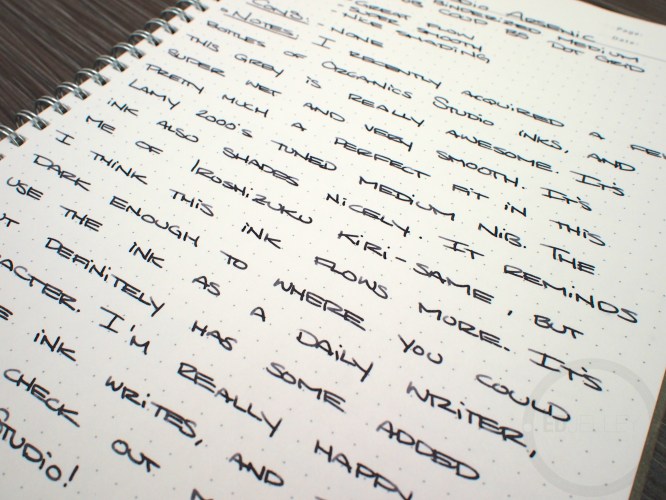 Arsenic
Binderized Medium
B5 Dot Grid
Page:
Date:
- Great flow
- Super smooth
- Nice shading
Cons: - None
- Notes: I recently acquired a few
bottles of Organics Studio inks, and
this grey is really awesome. It's
super wet and very smooth. It's
pretty much a perfect fit in this
Lamy 2000's tuned medium nib. The
ink also shades nicely. It reminds
me of Iroshizuku Kiri-same, but
I think this ink flows more. It's
dark enough to where you could
use the ink as a daily writer,
definitely has some added
I'm really happy
ink writes, and
check out
Studio!